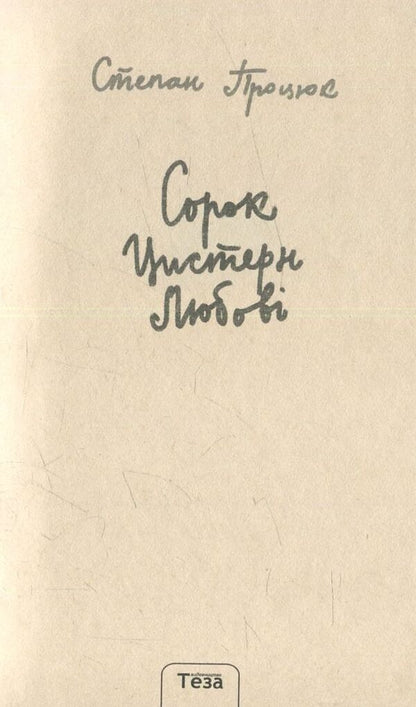 Степан Процюк
Сорок
Цистерн
Любові
видавництво
Теза